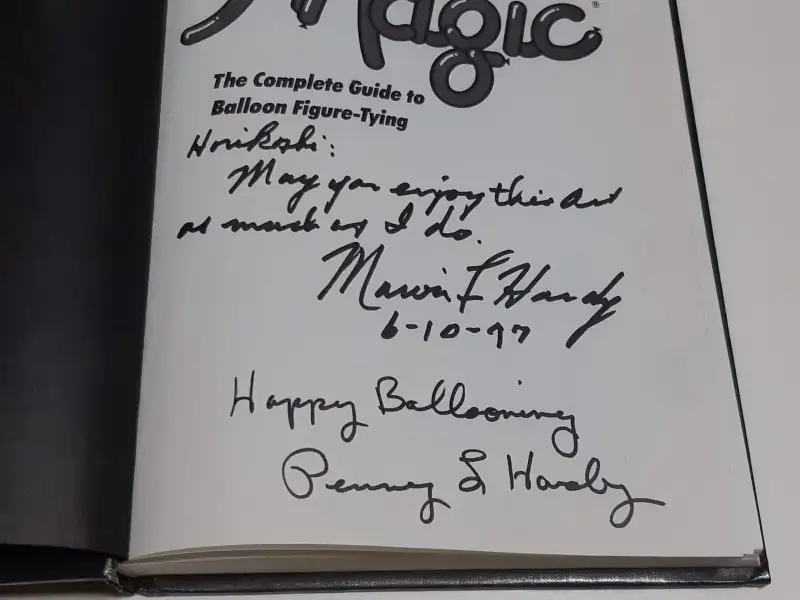 Magic®
The Complete Guide to
Balloon Figure-Tying
Horikoshi:
May you enjoy this Art
as much as I do.
Marvin L Hardy
6-10-97
Happy Ballooning
Penney L Hardy